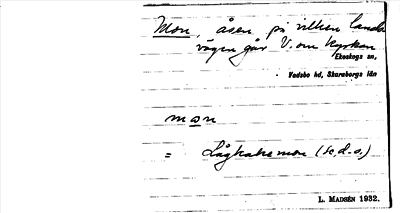 Mon, åsen, på vilken lands-
vägen går V. om kyrkan
Ekeskogs sn,
Vadsbo hd, Skaraborgs län
mon
= Lågkakamon (se d. o.)
L. MADSÉN 1932.